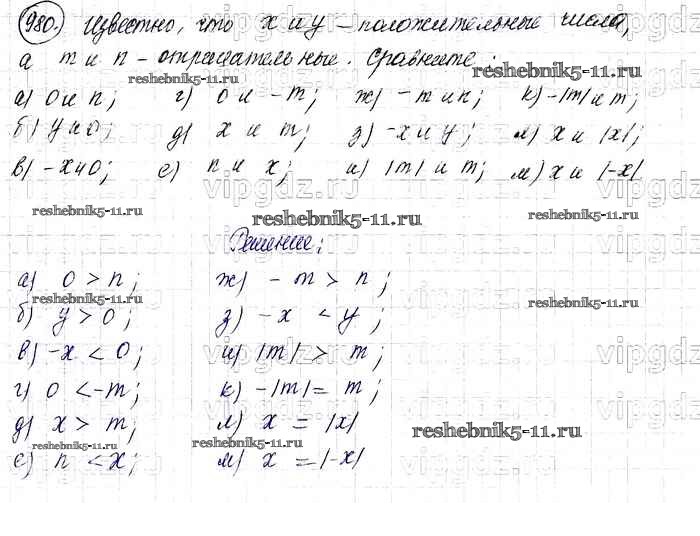 980. Известно, что x и y – положительные числа,
а m и n – отрицательные. Сравните:
reshebnik5-11.ru
reshebnik5-11.ru
а) 0 и n; г) 0 и -m; ж) -m и n; к) -|m| и m;
б) y и 0; д) x и m; з) -x и y; л) x и |x|;
в) -x и 0; е) n и x; и) |m| и m; м) x и |-x|
vipgdz.ru
reshebnik5-11.ru
reshebnik5-11.ru
reshebnik5-11.ru
Решение:
а) 0 > n; ж) -m > n;
reshebnik5-11.ru
reshebnik5-11.ru
б) y > 0; з) -x < y;
в) -x < 0; и) |m| > m;
г) 0 < -m; к) -|m| = m;
д) x > m; л) x = |x|
reshebnik5-11.ru
reshebnik5-11.ru
reshebnik5-11.ru
е) n < x; м) x = |-x|